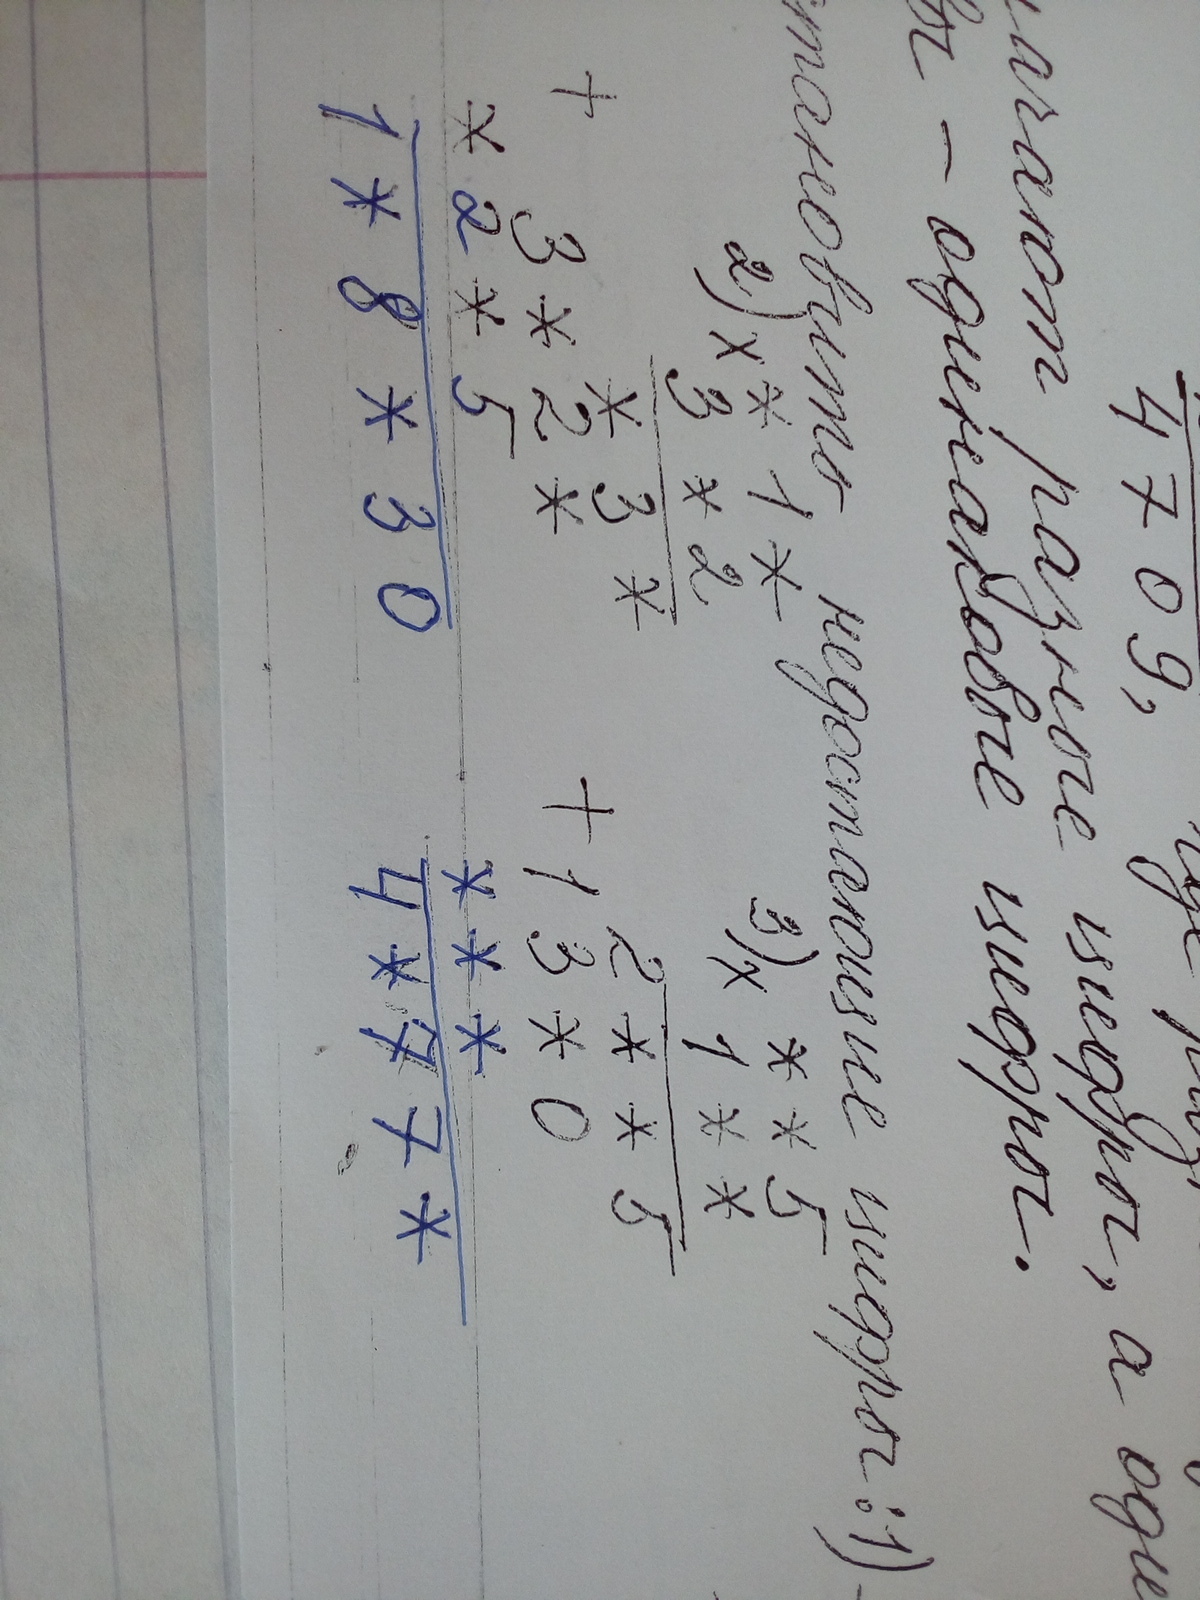 4 7 0 9, где
лагают разные цифры, а оди
вы – одинаковые цифры.
становить недостающие цифры: 1)
2) × * 1 * 3) × * * 5
3 * 2 1 * *
* 3 * 2 * * 5
+ 3 * 2 * + 1 3 * 0
* 2 * 5 * * *
1 * 8 * 3 0 4 * 7 7 *